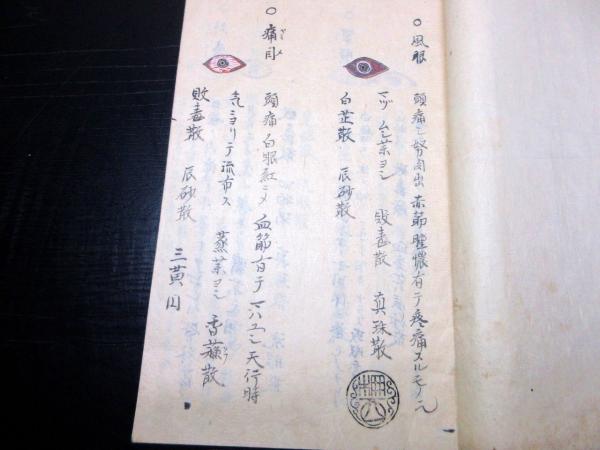 ○風眼 頭痛シ努肉出赤節 有テ疼痛スルモノ也
マヅムシ薬ヨシ 敗毒散 真珠散
白芷散 辰砂散
○痛目 頭痛白眼紅ニメ血節有テ 天行時
気ニヨリテ流布ス 蒸薬ヨシ 香蘇散
敗毒散 辰砂散 三黄円